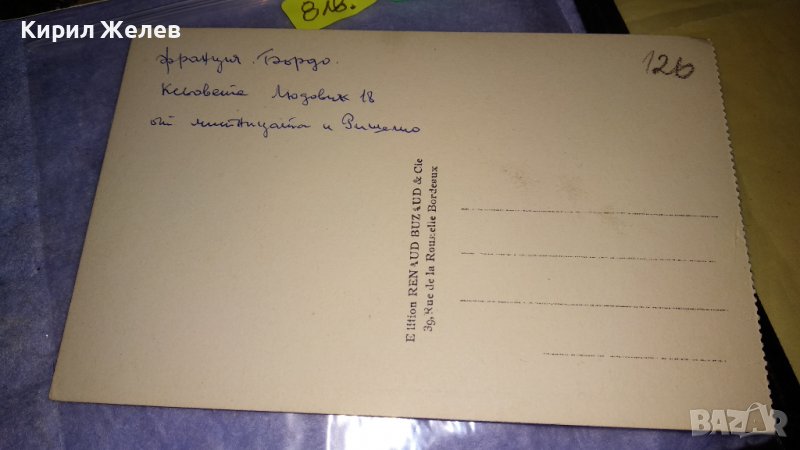 Кирил Желев
8 лв.
126
Франция. Бордо.
Кейовете Людовик 18
от митницата и Ришельо
Edition RENAUD BUZAUD & Cie
39, Rue de la Rousselle Bordeaux
BAZAR